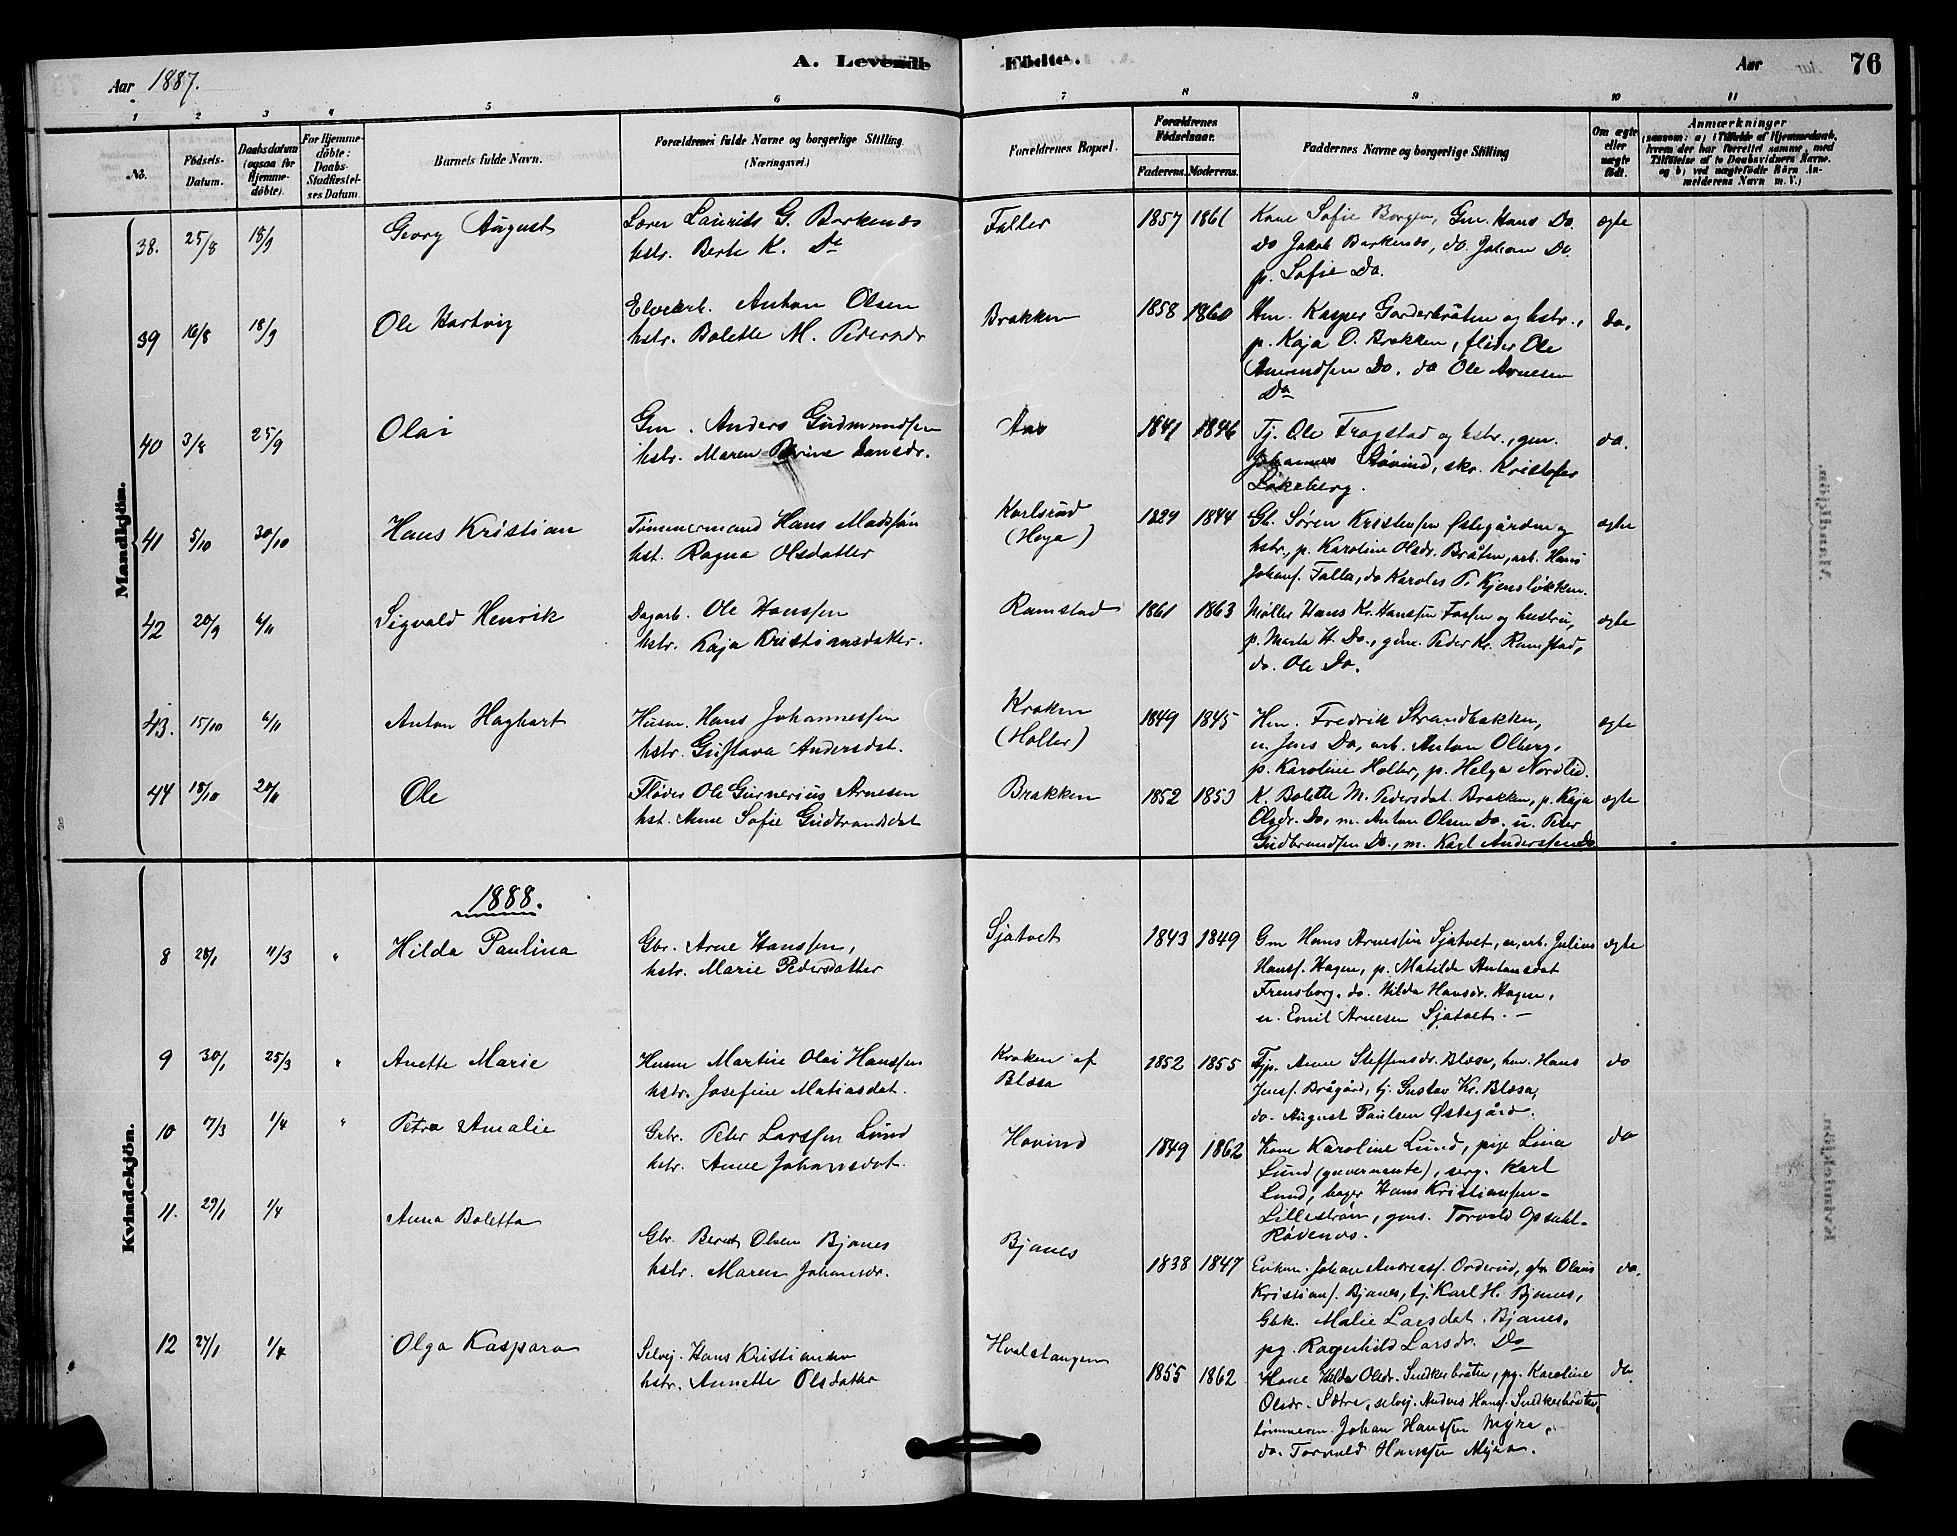 A. Levende Födte.
Aar 1887.
Aar
76
1 2 3 4 5 6 7 8 9 10 11
No.
Födsels-Datum.
Daabsdatum (ogsaa for Hjemme-döbte).
For Hjemme-döbte: Daabs-Stadfæstel-ses Datum.
Barnets fulde Navn.
Forældrenes fulde Navne og borgerlige Stilling (Næringsvei.)
Forældrenes Bopæl.
Forældrenes Födselsaar.
Faderens. Moderens.
Faddernes Navne og borgerlige Stilling
Om ægte eller uægte födt.
Anmærkninger
Mandkjön.
38. 25/8 18/9 Georg August
Laurits G. Borkenæs
hstr. Berte K. Do
Falter 1857 1861
Kone Sofie Borgen, Gm. Hans Do.
do Jakob Borkenæs, do. Johan Do
p. Sofie Do.
ægte
39 16/8 18/9 Ole Hartvig
Elvearb. Anton Olsen
hstr. Bolette M. Pedersdr
Brakken 1858 1860
Hm. Kasper Garderbråten og hstr.,
p. Kaja O. Brakken, fløder Ole
Amundsen Do. do Ole Arnesen
Do
do.
40 3/8 25/9 Olai
Gm. Anders Gudmundsen
hstr. Maren Jensdr.
Aas 1841 1846
Tj. Ole Frogstad og hstr., gm.
Johannes Støvind, skr. Kristofer
Lökeberg.
do.
41 5/10 30/10 Hans Kristian
Tømmermand Hans Madssøn
hst. Ragna Olsdatter
Karlsrud
(Heya) 1829 1844
Gb. Søren Kristensen Østegården og
hstr., p. Karoline Olsdr. Bråten, arb. Hans
Johans. Falla, do Karoles P. Kjensløkken.
ægte
42 20/9 6/11 Sigvald Henrik
Dagarb. Ole Hanssen
hstr. Kaja Kristiansdatter.
Ramstad 1861 1863
Møller Hans Kr. Hanssen Fossen og hustru,
p. Marte H. Do., gdm. Peder Kr. Ramstad,
do. Ole Do.
ægte
43. 15/10 6/11 Anton Hagbart
Husm. Hans Johannessen
hstr. Gustava Andersdat.
Kroken
(Holter) 1849 1845
Hm. Fredrik Strandbakken,
u. Jens Do, arb. Anton Olberg,
p. Karoline Holter, p. Helga Nordlid.
ægte
44 18/10 20/11 Ole
Fløder Ole Gunerius Arnesen
hst. Anne Sofie Gudbrandsdat
Brakken 1852 1853
K. Bolette M. Pedersdat. Brakken, p. Kaja
Olsdr. Do, m. Anton Olsen Do. u. Peter
Gudbrandsen Do., m. Karl Anderssen Do
ægte
1888.
Kvindekjön.
8 28/1 11/3 " Hilda Paulina
Gbr. Arne Hanssen,
hstr. Marie Pedersdatter
Sjatvet 1843 1849
Gm Hans Arnessen Sjatvet, u. arb. Julius
Hans. Hagen, p. Matilde Antonsdat
Frensborg, do. Hilda Hansdr. Hagen,
u. Emil Arnesen Sjatvet. -
ægte
9 30/1 25/3 " Anette Marie
Husm Martin Olai Hanssen
hstr. Josefine Matiasdat.
Kroken af
Blæsa 1852 1855
Tjp. Anne Steffensdr. Blæsa, hm. Hans
Jens. Brågård, tj. Gustav Kr. Blæsa,
do. August Paulsen Østegård.
do
10 7/3 1/4 " Petra Amalie
Gbr. Peter Larssen Lund
hstr. Anne Johansdat.
Hovind 1849 1862
Kone Karoline Lund, pige Lina
Lund (guvernante), serg. Karl
Lund, bager Hans Kristiansen-
Lillestrøm, gms. Torvald Opsahl-
Rødenæs.
do
11. 29/1 1/4 Anna Boletta
Gbr. Bernt Olsen Bjanes
hstr. Maren Johansdr.
Bjanes 1838 1847
Enkem. Johan Andreas. Orderud, gbr Olaus
Kristians. Bjanes, tj. Karl H. Bjanes,
Gbk. Malie Larsdat. Bjanes,
pg. Ragnhild Larsdr. Do
do.
12 27/1 1/4 Olga Kaspara
Selvej. Hans Kristiansen
hstr. Annette Olsdatter
Hvalstangen 1855 1862
Kone Hilda Olsdr. Snekkerbråten, pg. Karoline
Olsdr. Sætre, selvej. Anders Hans. Snekkerbråten,
tømmerm. Johan Hanssen Myra,
do. Torvald Hanssen Myra.
do.